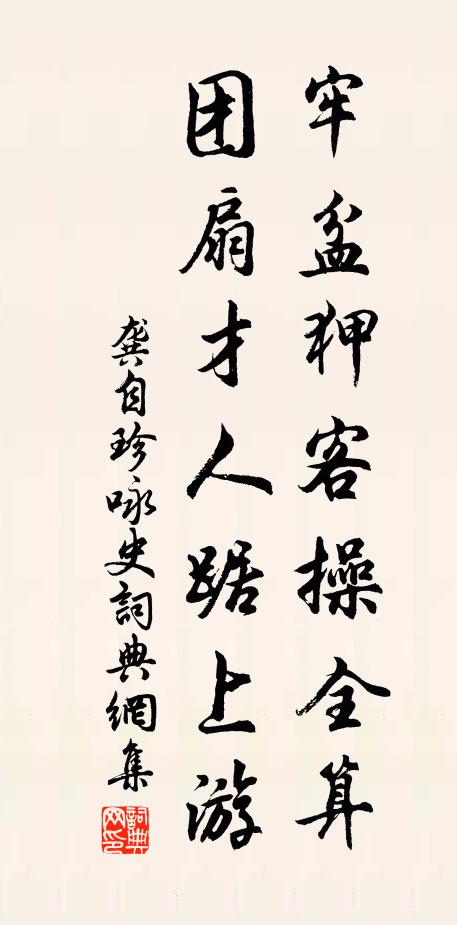 牢盆狎客操全算
团扇才人踞上游
龚自珍咏史詞典網集
詞典网印